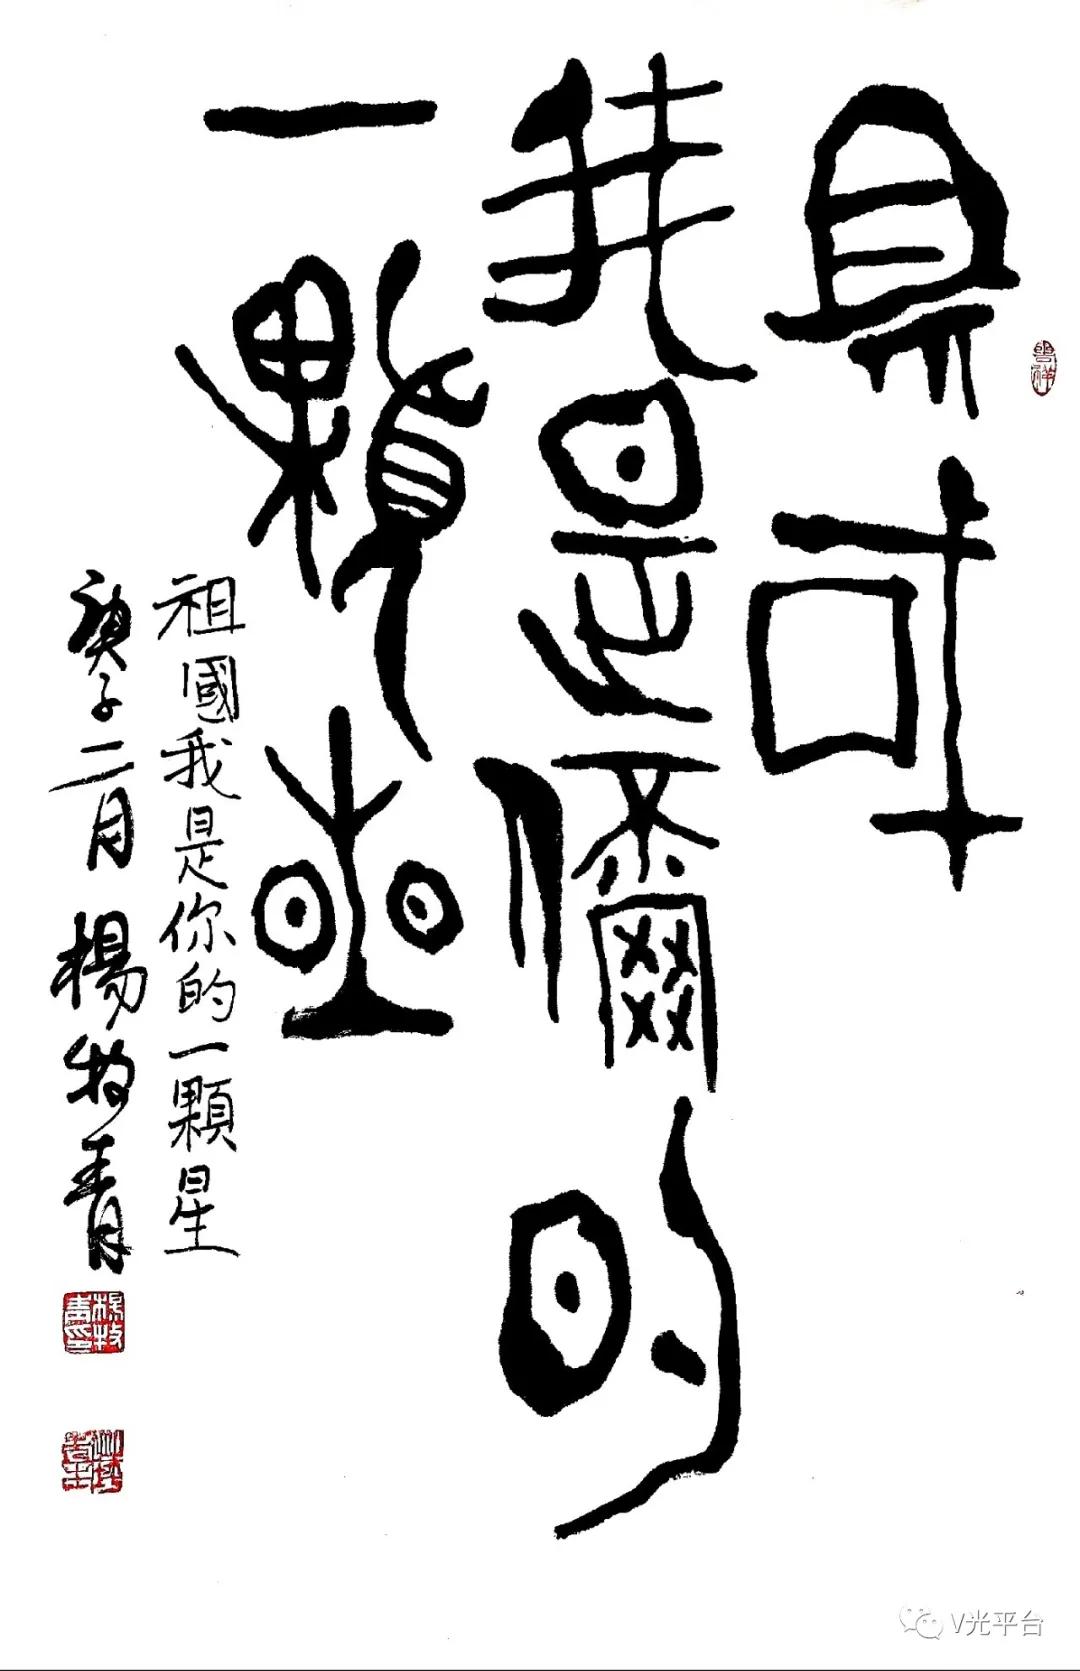 祖國
我是你的
一顆星
祖國我是你的一顆星
庚子二月 楊牧青
V光平台